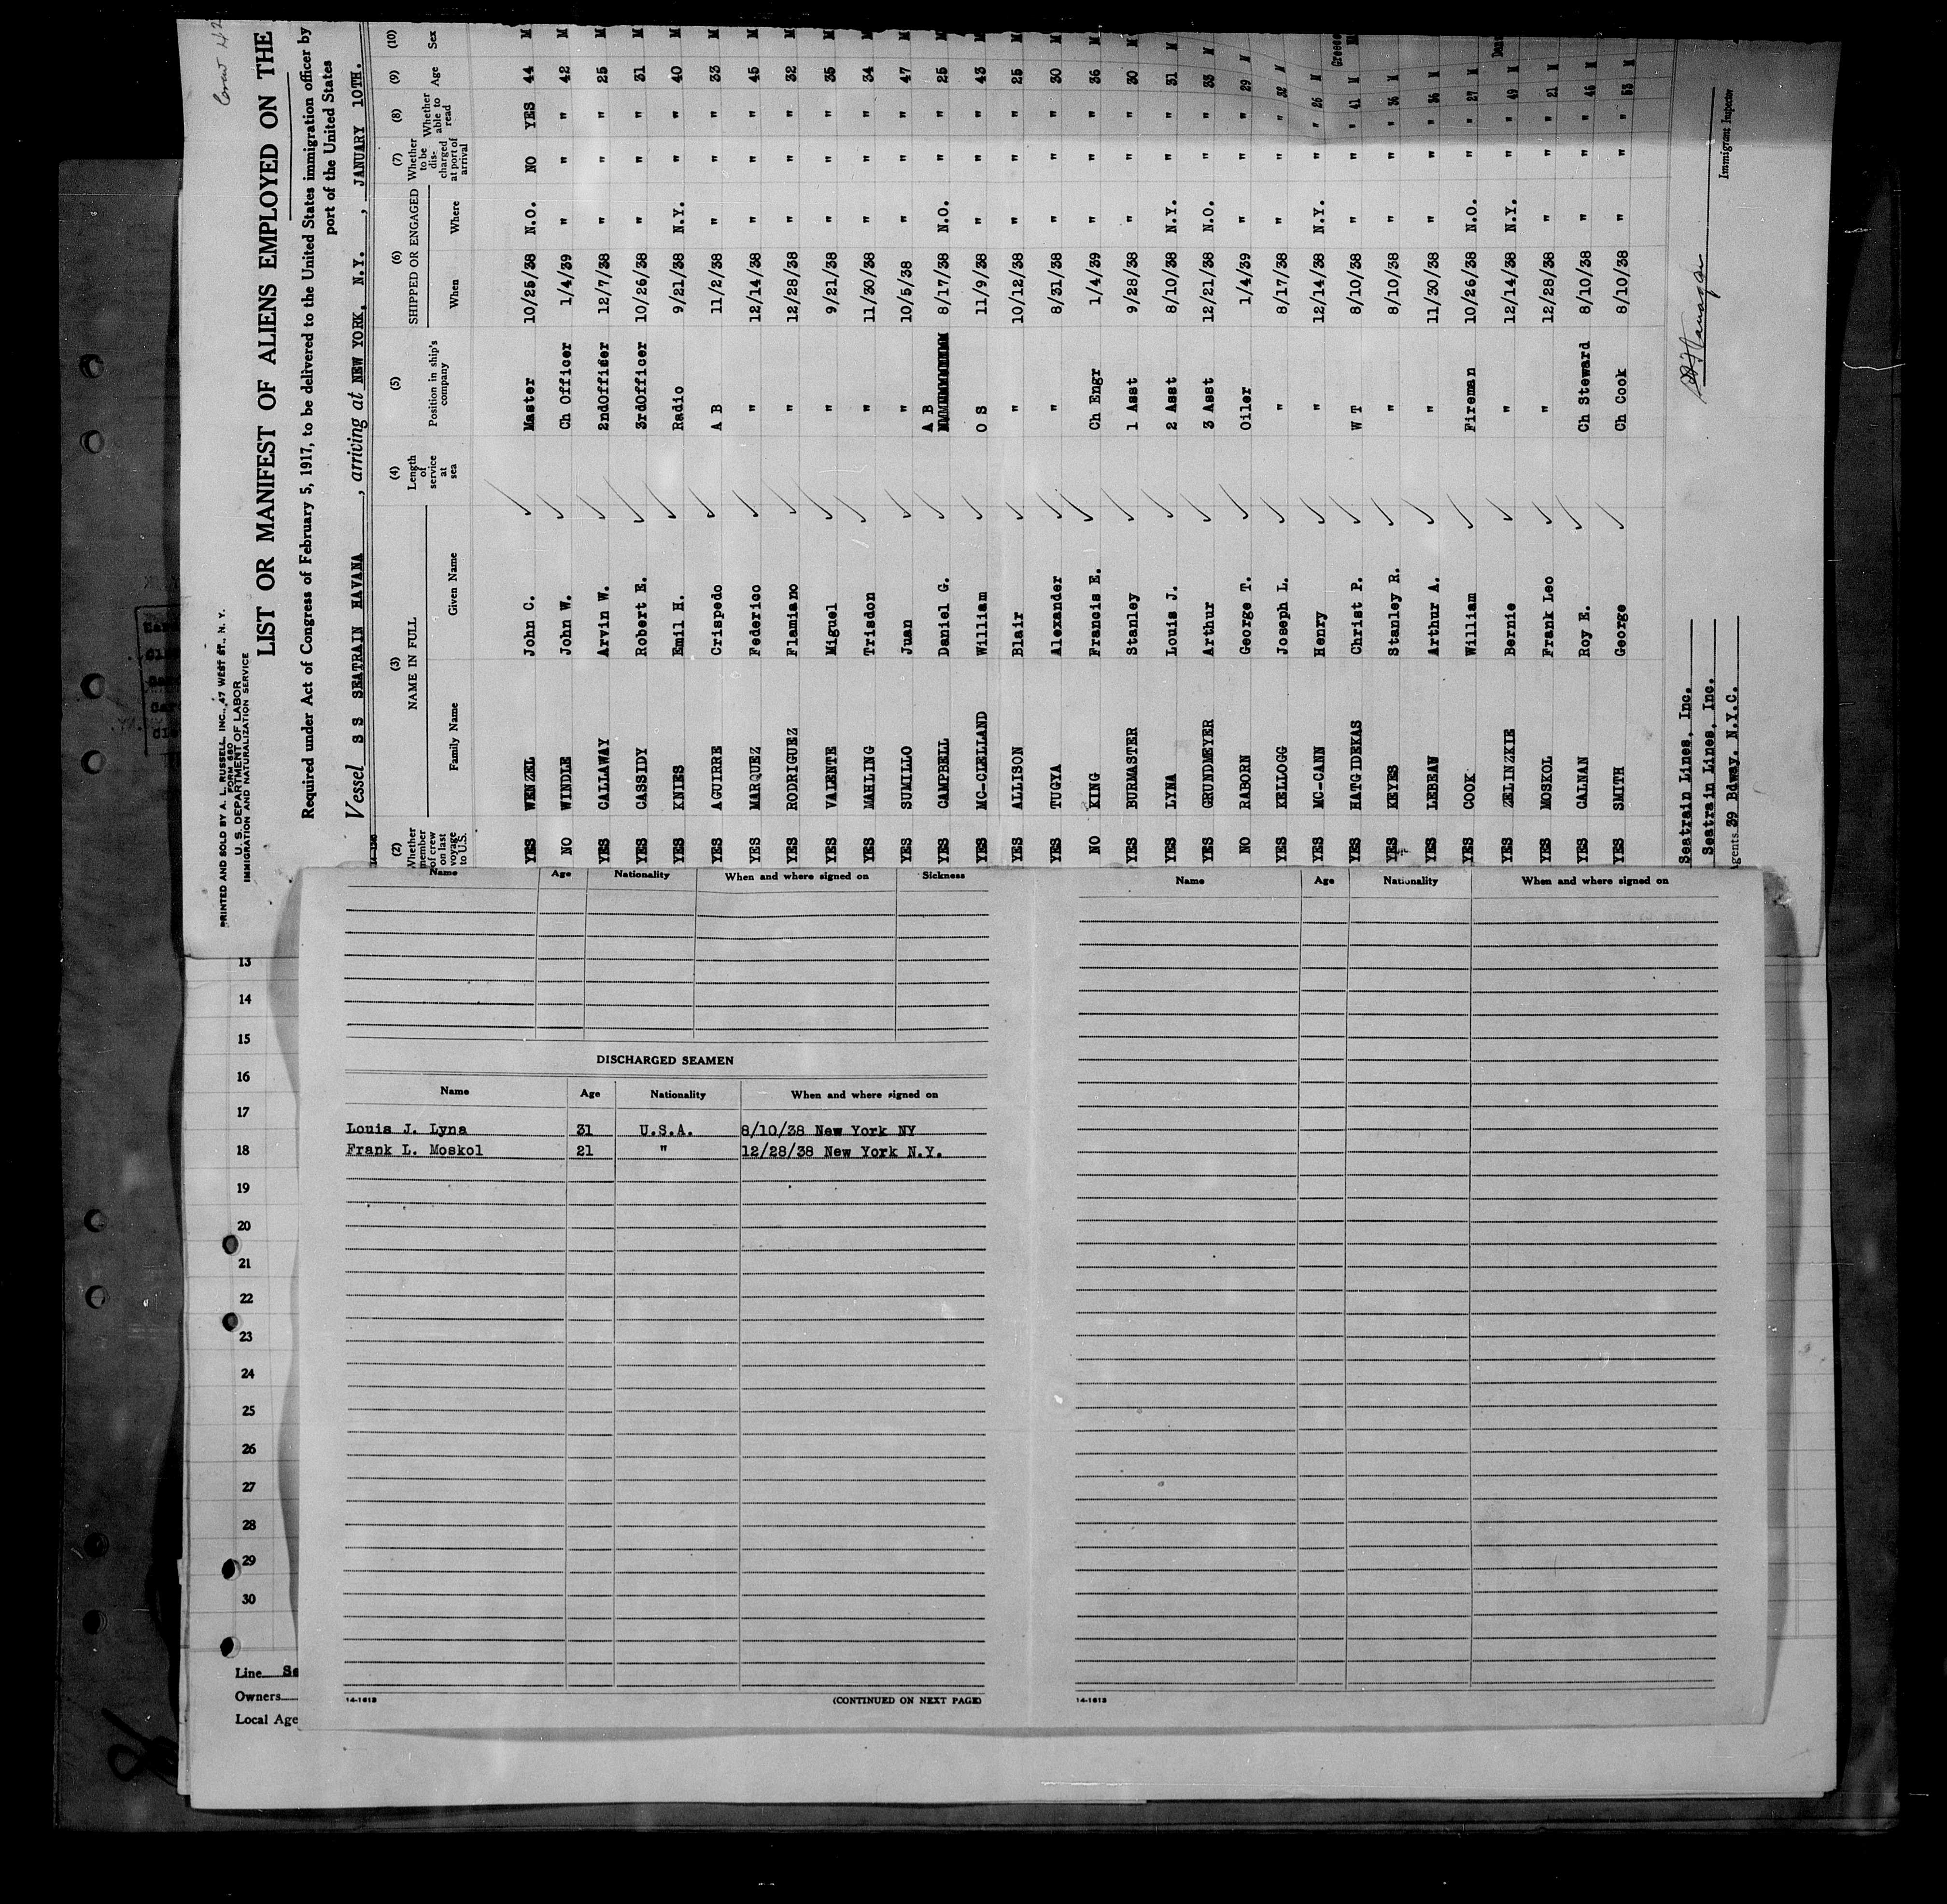 Crew 42
PRINTED AND SOLD BY A. L. RUSSELL, INC., 47 WEST ST., N. Y.
FORM 680
U. S. DEPARTMENT OF LABOR
IMMIGRATION AND NATURALIZATION SERVICE
LIST OR MANIFEST OF ALIENS EMPLOYED ON THE
Required under Act of Congress of February 5, 1917, to be delivered to the United States immigration officer by
port of the United States
Vessel S S SEATRAIN HAVANA, arriving at NEW YORK, N.Y., JANUARY 10TH.
(2) Whether member of crew on last voyage to U.S. (3) NAME IN FULL Family Name Given Name (4) Length of service at sea (5) Position in ship's company (6) SHIPPED OR ENGAGED When Where (7) Whether to be discharged at port of arrival (8) Whether able to read (9) Age (10) Sex
YES WENZEL John C. Master 10/25/38 N.O. NO YES 44 M
NO WINDLE John W. Ch Officer 1/4/39 " " " 42 M
YES CALLAWAY Arvin W. 2ndOfficer 12/7/38 " " " 25 M
YES CASSIDY Robert E. 3rdOfficer 10/26/38 " " " 31 M
YES KNIES Emil H. Radio 9/21/38 N.Y. " " 40 M
YES AGUIRRE Crispedo A B 11/2/38 " " " 33 M
YES MARQUEZ Federico " 12/14/38 " " " 45 M
YES RODRIGUEZ Flamiano " 12/28/38 " " " 32 M
YES VALENTE Miguel " 9/21/38 " " " 35 M
YES MAHLING Trisdon " 11/30/38 " " " 34 M
YES SUMILLO Juan " 10/5/38 " " " 47 M
YES CAMPBELL Daniel G. A B 8/17/38 N.O. " " 25 M
YES MC-CLELLAND William O S 11/9/38 " " " 43 M
YES ALLISON Blair " 10/12/38 " " " 25 M
YES TUGYA Alexander " 8/31/38 " " " 30 M
NO KING Francis E. Ch Engr 1/4/39 " " " 36 M
YES BURMASTER Stanley 1 Asst 9/28/38 " " " 30 M
YES LYNA Louis J. 2 Asst 8/10/38 N.Y. " " 31 M
YES GRUNDMEYER Arthur 3 Asst 12/21/38 N.O. " " 33 M
NO RABORN George T. Oiler 1/4/39 " " " 29 M
YES KELLOGG Joseph L. " 8/17/38 " " " 32 M
YES MC-CANN Henry " 12/14/38 N.Y. " " 26 M
YES HATGIDEKAS Christ P. W T 8/10/38 " " " 41 M Greece
YES KEYES Stanley R. " 8/10/38 " " " 36 M
YES LEBEAN Arthur A. " 11/30/38 " " " 36 M
YES COOK William Fireman 10/26/38 N.O. " " 27 M
YES ZELINZKIE Bernie " 12/14/38 N.Y. " " 49 M
YES MOSKOL Frank Leo " 12/28/38 " " " 21 M
YES CALNAN Roy E. Ch Steward 8/10/38 " " " 45 M
YES SMITH George Ch Cook 8/10/38 " " " 53 M
Seatrain Lines, Inc.
Seatrain Lines, Inc.
Agents 39 Bdway. N.Y.C.
Immigrant Inspector
Name Age Nationality When and where signed on Sickness
DISCHARGED SEAMEN
Name Age Nationality When and where signed on
Louis J. Lyna 31 U.S.A. 8/10/38 New York NY
Frank L. Moskol 21 " 12/28/38 New York N.Y.
14-1613 (CONTINUED ON NEXT PAGE)
Name Age Nationality When and where signed on
14-1613
13
14
15
16
17
18
19
20
21
22
23
24
25
26
27
28
29
30
Line Se
Owners
Local Age